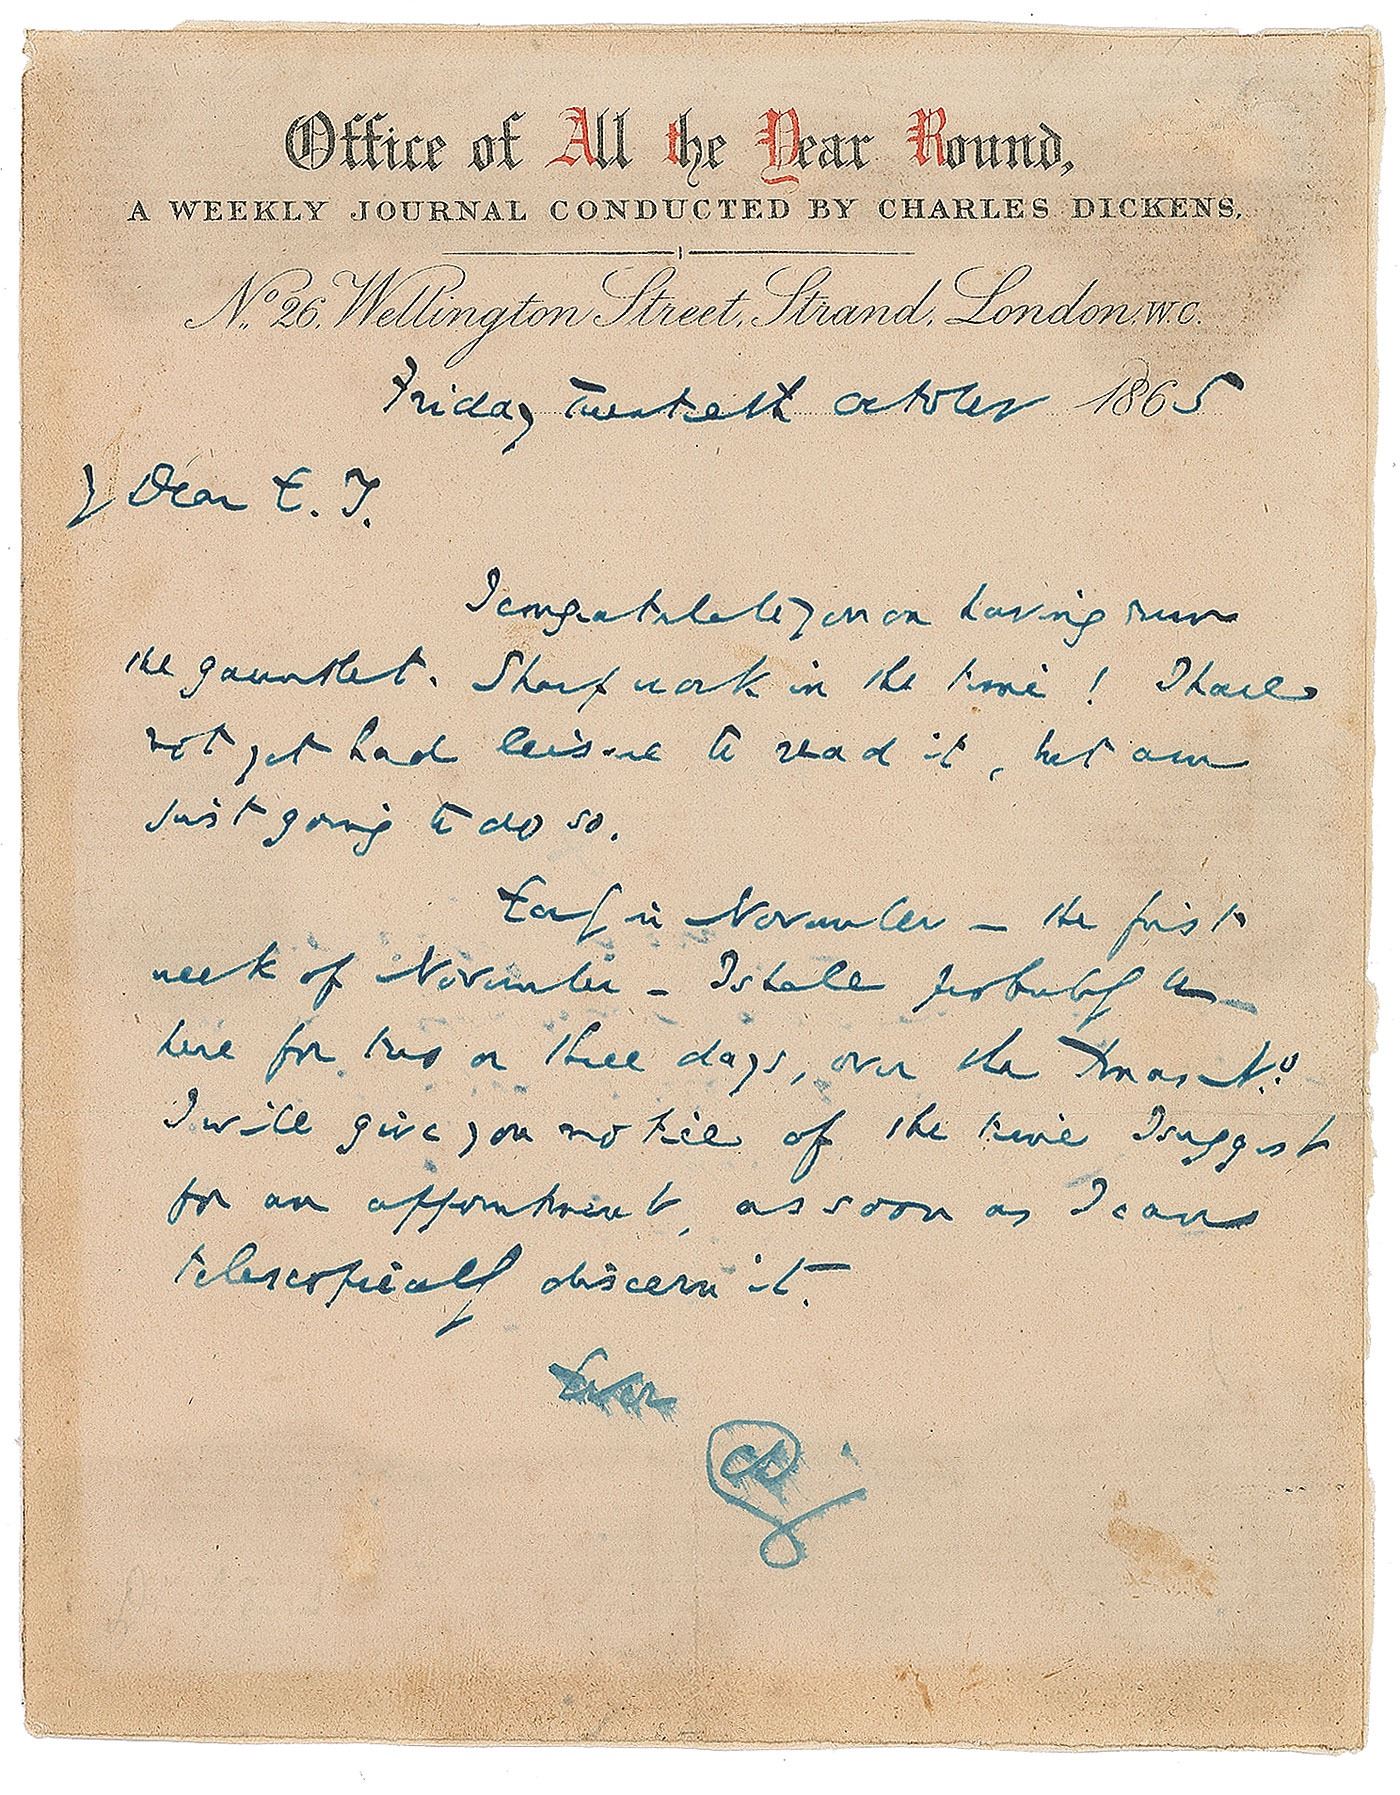 Office of All the Year Round,
A WEEKLY JOURNAL CONDUCTED BY CHARLES DICKENS.
No. 26, Wellington Street, Strand, London, W.C.
Friday Twentieth October 1865
Dear E. Y.
I congratulate you on having run
the gauntlet. Sharp work in the time! I have
not yet had leisure to read it, but am
just going to do so.
Early in November – the first
week of November – I shall probably be
here for two or three days, over the Xmas No.
I will give you notice of the time I suggest
for an appointment, as soon as I can
telescopically discern it.
Ever
CD